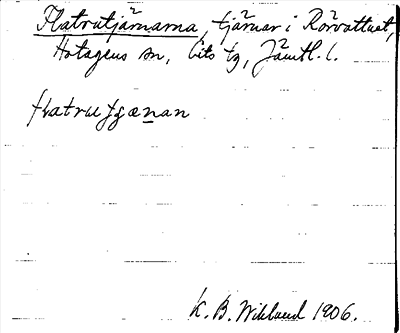 Flatrutjärnarna, tjärnar i Rörvattnet,
Hotagens sn, Lits tg, Jämtl. l.
flatrutjænan
K. B. Wiklund 1906.